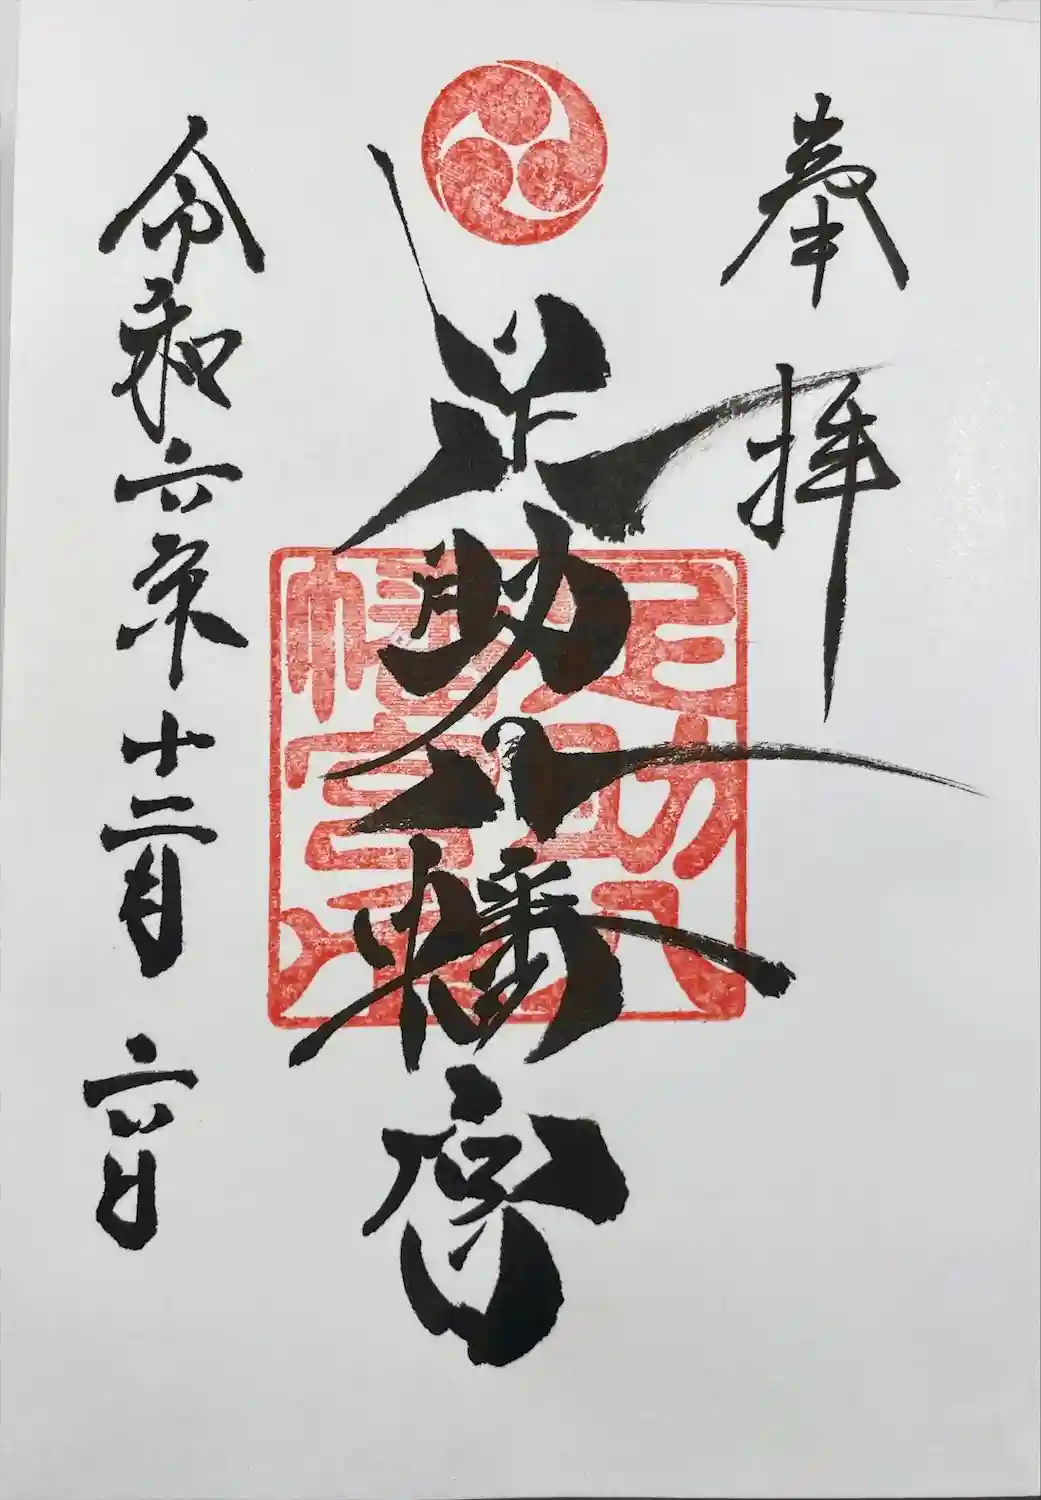 奉拝
足助八幡宮
足助八
幡宮
令和六年十二月六日